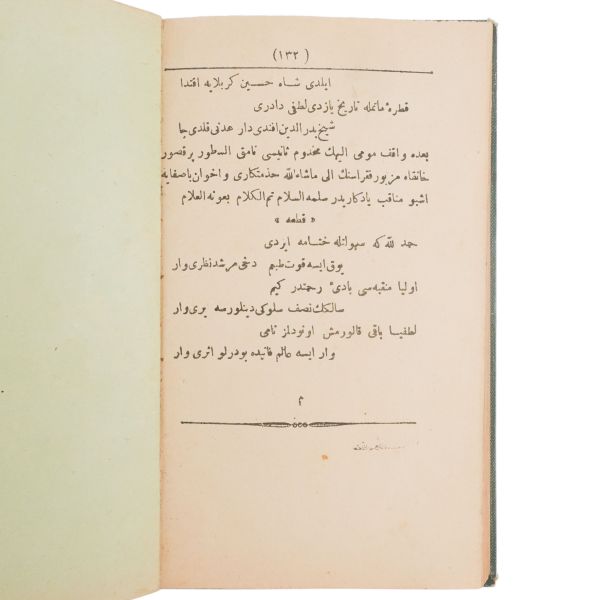 (١٣٢)
ايلدى شاه حسين كربلايه اقتدا
قطرهٔ ماتمله تاريخ يازدى لطفى دادرى
شيخ بدرالدين افندى دار عدنى قلدى جا
بعده واقف مومى اليهك مخدوم ثانيسى نامق السطور پرقصور
خانقاه مزبور فقراسنك الى ماشاءالله خدمتكارى و اخوان باصفايه
اشبو مناقب يادكاريدر سلمه السلام تم الكلام بعونه العلام
« قطعه »
حمد لله كه سهولتله ختامه ايردى
يوق ايسه قوت طبعم دخى مرشد نظرى وار
اوليا منقبه سى بادئ رحمتدر كيم
سالكك نصف سلوكى دينلورسه يرى وار
لطفيا باقى قالورمش اونودلز نامى
وار ايسه عالم فانيده بودرلو اثرى وار
م